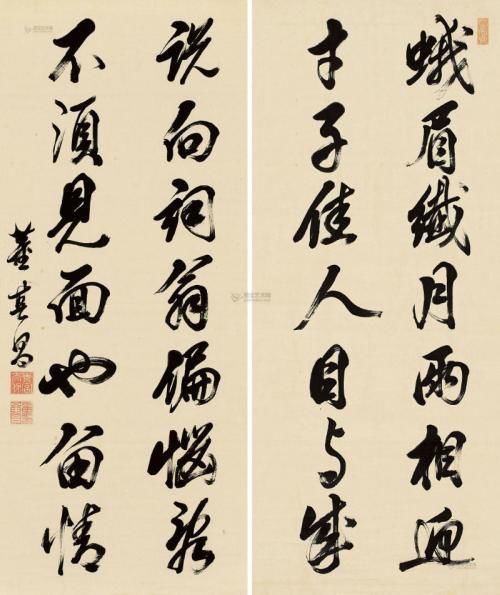 蛾眉纖月兩相迎
才子佳人目与成
説向詞翁偏惱殺
不湏見面也留情
董其昌